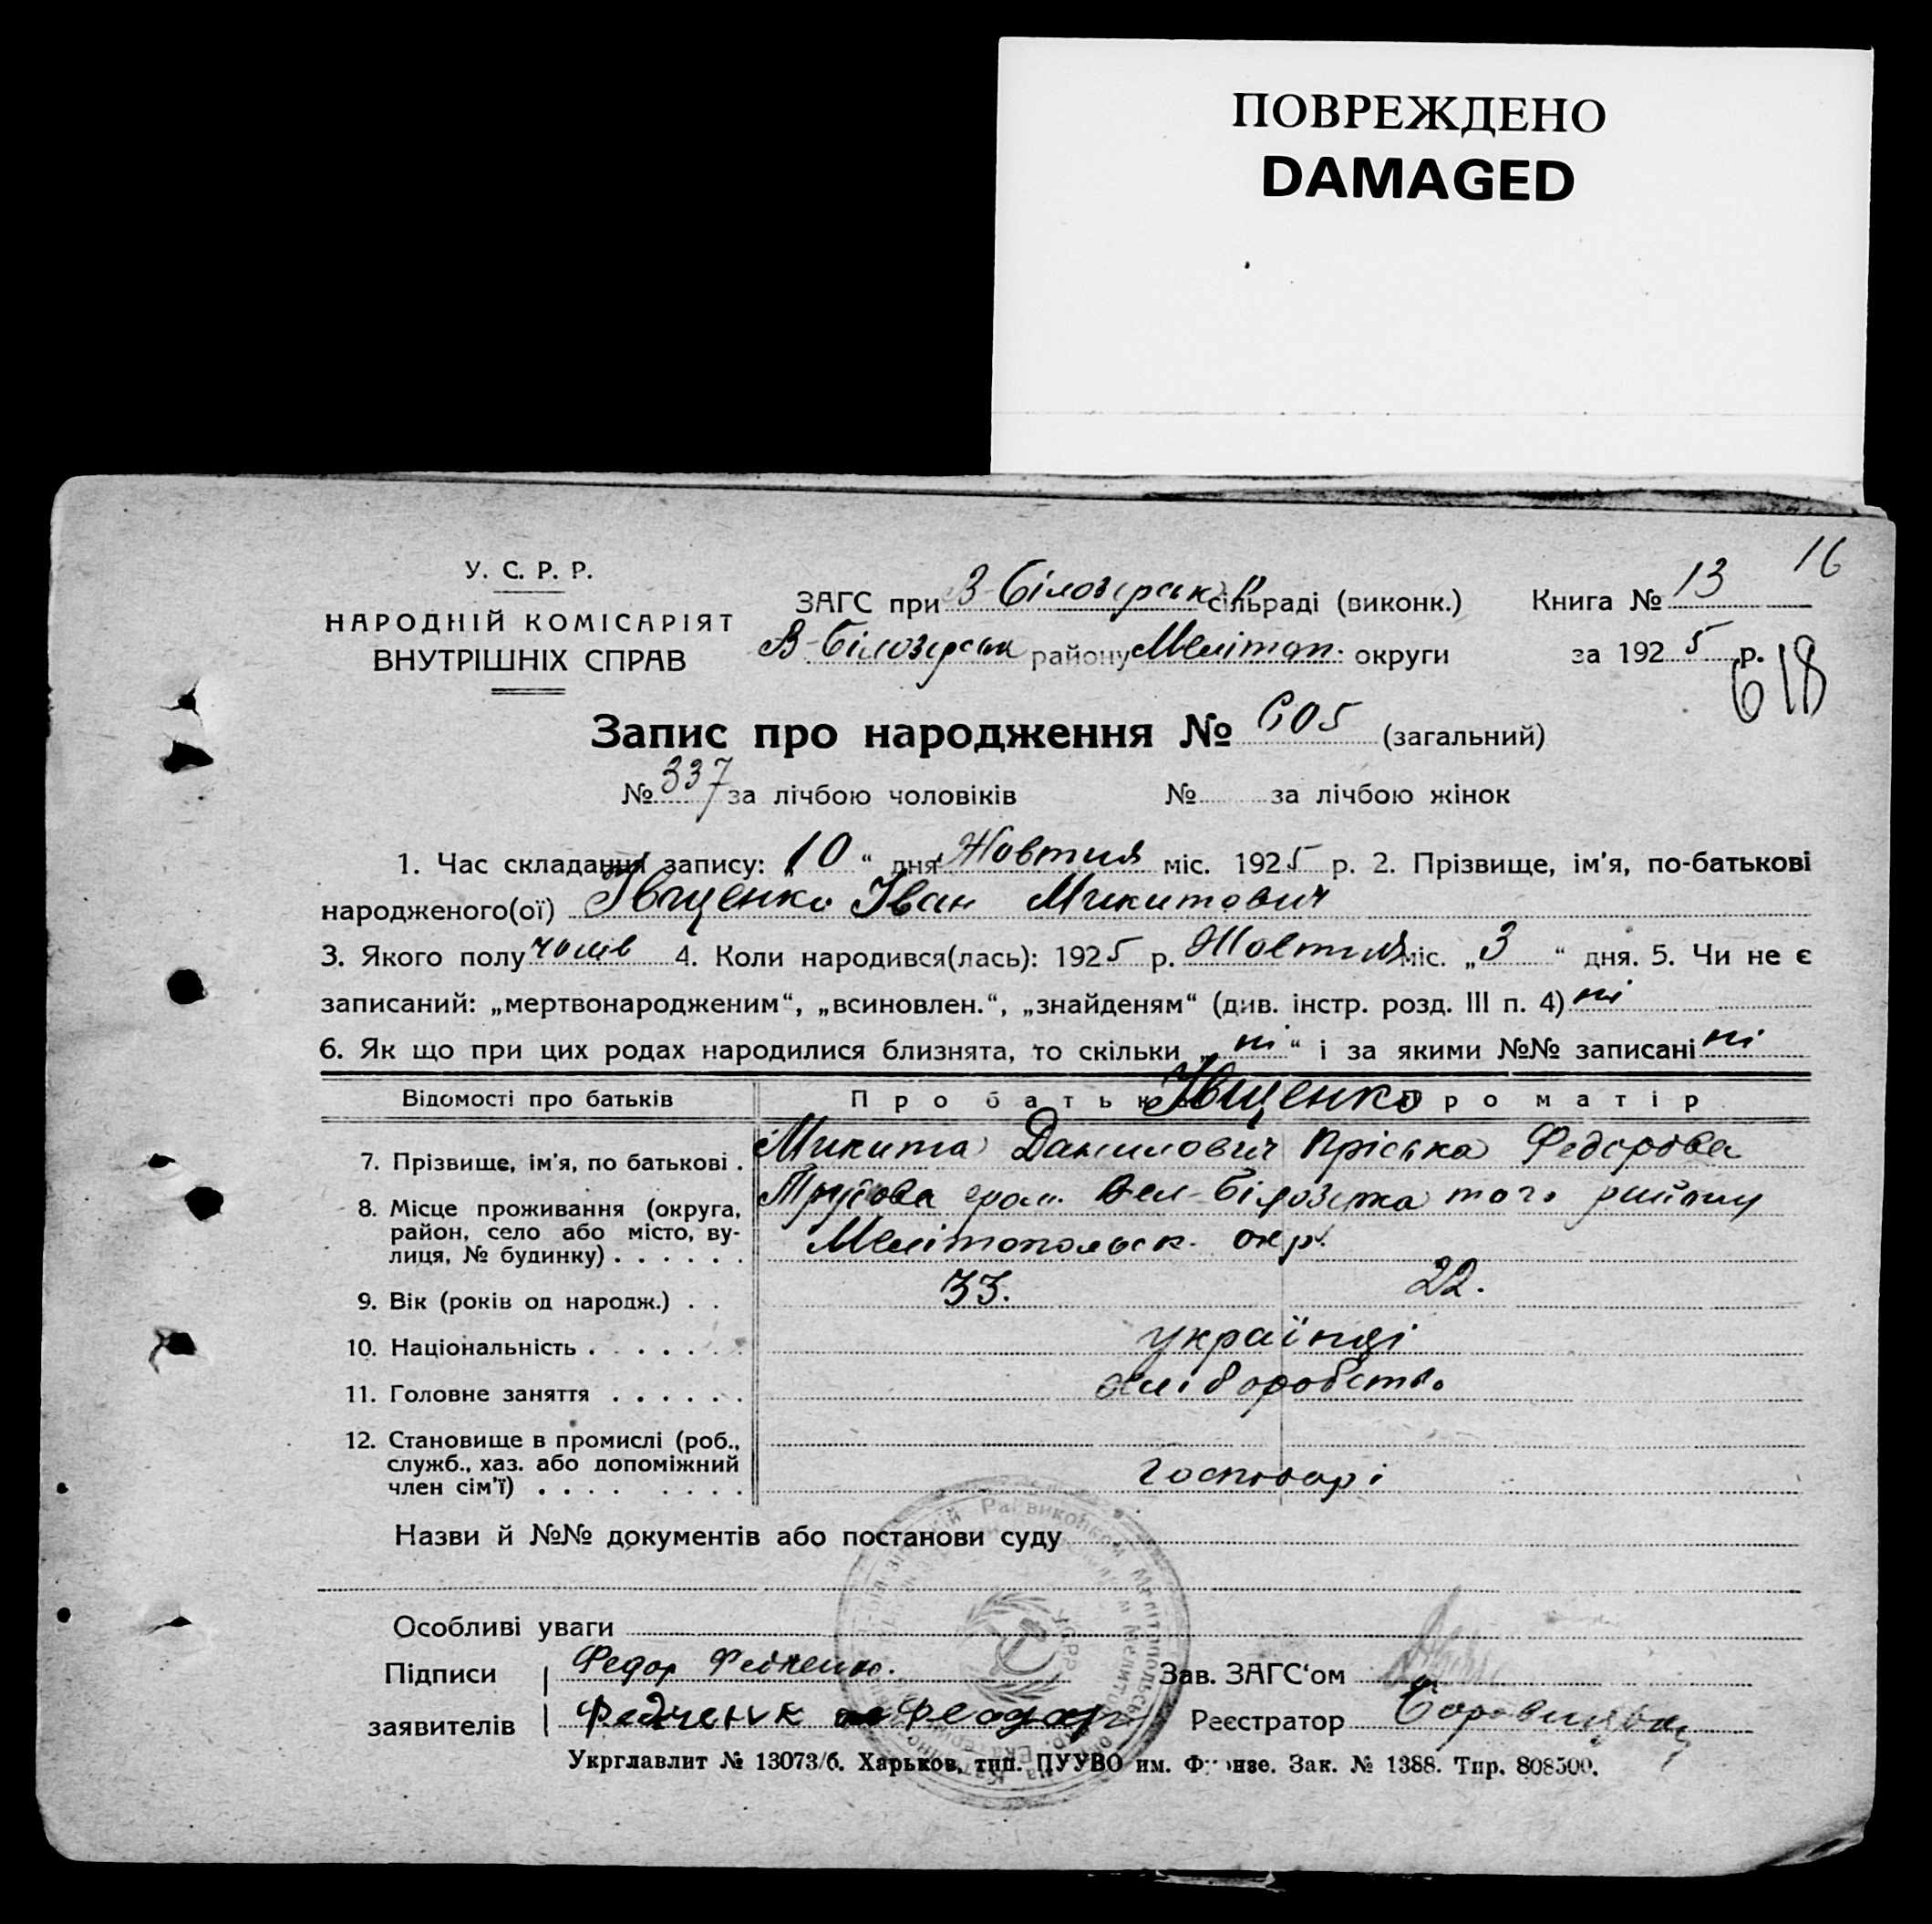 ПОВРЕЖДЕНО
DAMAGED
16
У. С. Р. Р.
НАРОДНІЙ КОМІСАРІЯТ
ВНУТРІШНІХ СПРАВ
ЗАГС при В-Білозерськ сільраді (виконк.) Книга № 13
В-Білозерськ району Мелітоп. округи за 1925 р.
618
Запис про народження № 605 (загальний)
№ 337 за лічбою чоловіків № за лічбою жінок
1. Час складання запису: „10“ дня Жовтня міс. 1925 р. 2. Прізвище, ім'я, по-батькові
народженого(ої) Івщенко Іван Микитович
3. Якого полу чолів 4. Коли народився(лась): 1925 р. Жовтня міс. „3“ дня. 5. Чи не є
записаний: „мертвонародженим“, „всиновлен.“, „знайденям“ (див. інстр. розд. III п. 4) ні
6. Як що при цих родах народилися близнята, то скільки „ні“ і за якими №№ записані ні
Відомості про батьків Про батька Про матір
Івщенко
7. Прізвище, ім'я, по батькові . Микита Данилович Пріська Федорова
8. Місце проживання (округа, район, село або місто, вулиця, № будинку) . . . . . . гром. Вел-Білозерка того району
Мелітопольськ. окр.
9. Вік (років од народж.) . . 33. 22.
10. Національність . . . . . . . українці
11. Головне заняття . . . . . . хліборобство
12. Становище в промислі (роб., служб., хаз. або допоміжний член сім'ї) . . . . . . . . господарі
Назви й №№ документів або постанови суду
Особливі уваги
Підписи Федор Зав. ЗАГС'ом
заявителів Федченк Феодор Реєстратор
Укрглавлит № 13073/б. Харьков, тип. ПУУВО им. Фрунзе. Зак. № 1388. Тир. 808500.